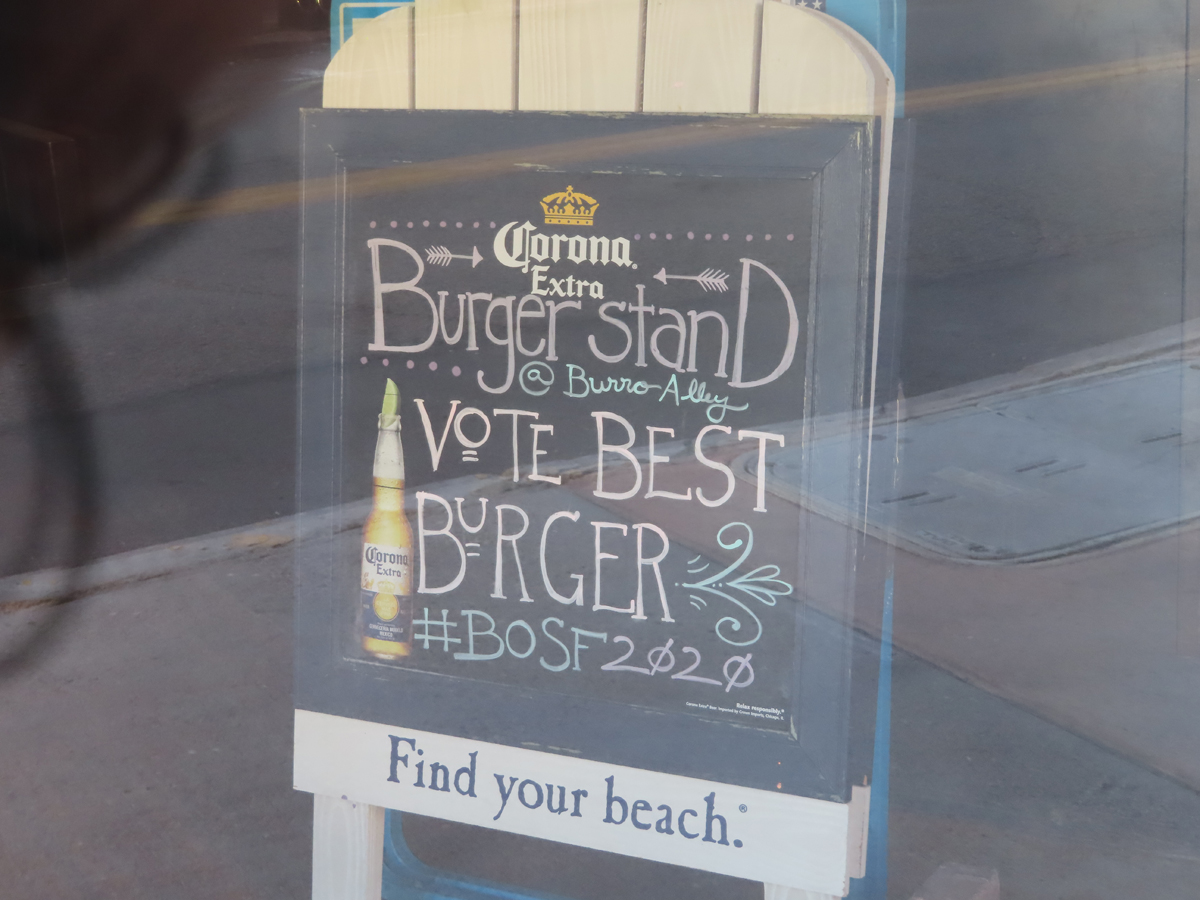 Corona
Extra
Burger stanD
@ Burro Alley
VOTE BEST
BURGER
Corona
Extra
#BOSF2020
Relax responsibly.®
Find your beach.®